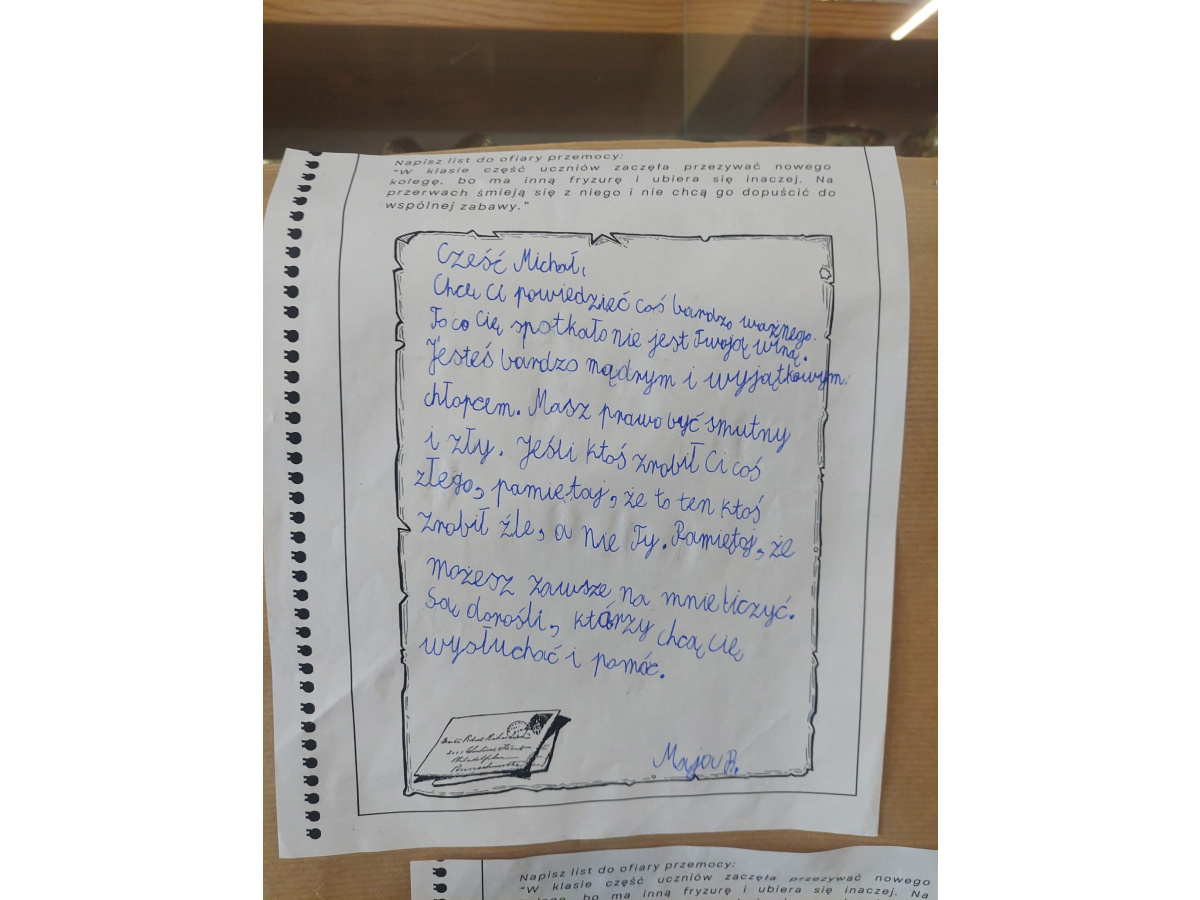 Napisz list do ofiary przemocy:
"W klasie część uczniów zaczęła przezywać nowego
kolegę, bo ma inną fryzurę i ubiera się inaczej. Na
przerwach śmieją się z niego i nie chcą go dopuścić do
wspólnej zabawy."
Cześć Michał,
Chcę Ci powiedzieć coś bardzo ważnego.
To co Cię spotkało nie jest Twoją winą.
Jesteś bardzo mądrym i wyjątkowym
chłopcem. Masz prawo być smutny
i zły. Jeśli ktoś zrobił Ci coś
złego, pamiętaj, że to ten ktoś
zrobił źle, a nie Ty. Pamiętaj, że
możesz zawsze na mnie liczyć.
Są dorośli, którzy chcą cię
wysłuchać i pomóc.
Maja B.
Philadelphia
Napisz list do ofiary przemocy:
"W klasie część uczniów zaczęła przezywać nowego
kolegę, bo ma inną fryzurę i ubiera się inaczej. Na